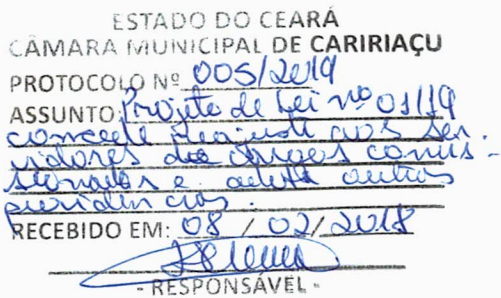 ESTADO DO CEARÁ
CÂMARA MUNICIPAL DE CARIRIAÇU
PROTOCOLO Nº 005/2019
ASSUNTO: Projeto de Lei nº 01/19
concede reajuste aos ser-
vidores de cargos comis-
sionados e adota outras
providências.
RECEBIDO EM: 08 / 02 / 2018
- RESPONSÁVEL -